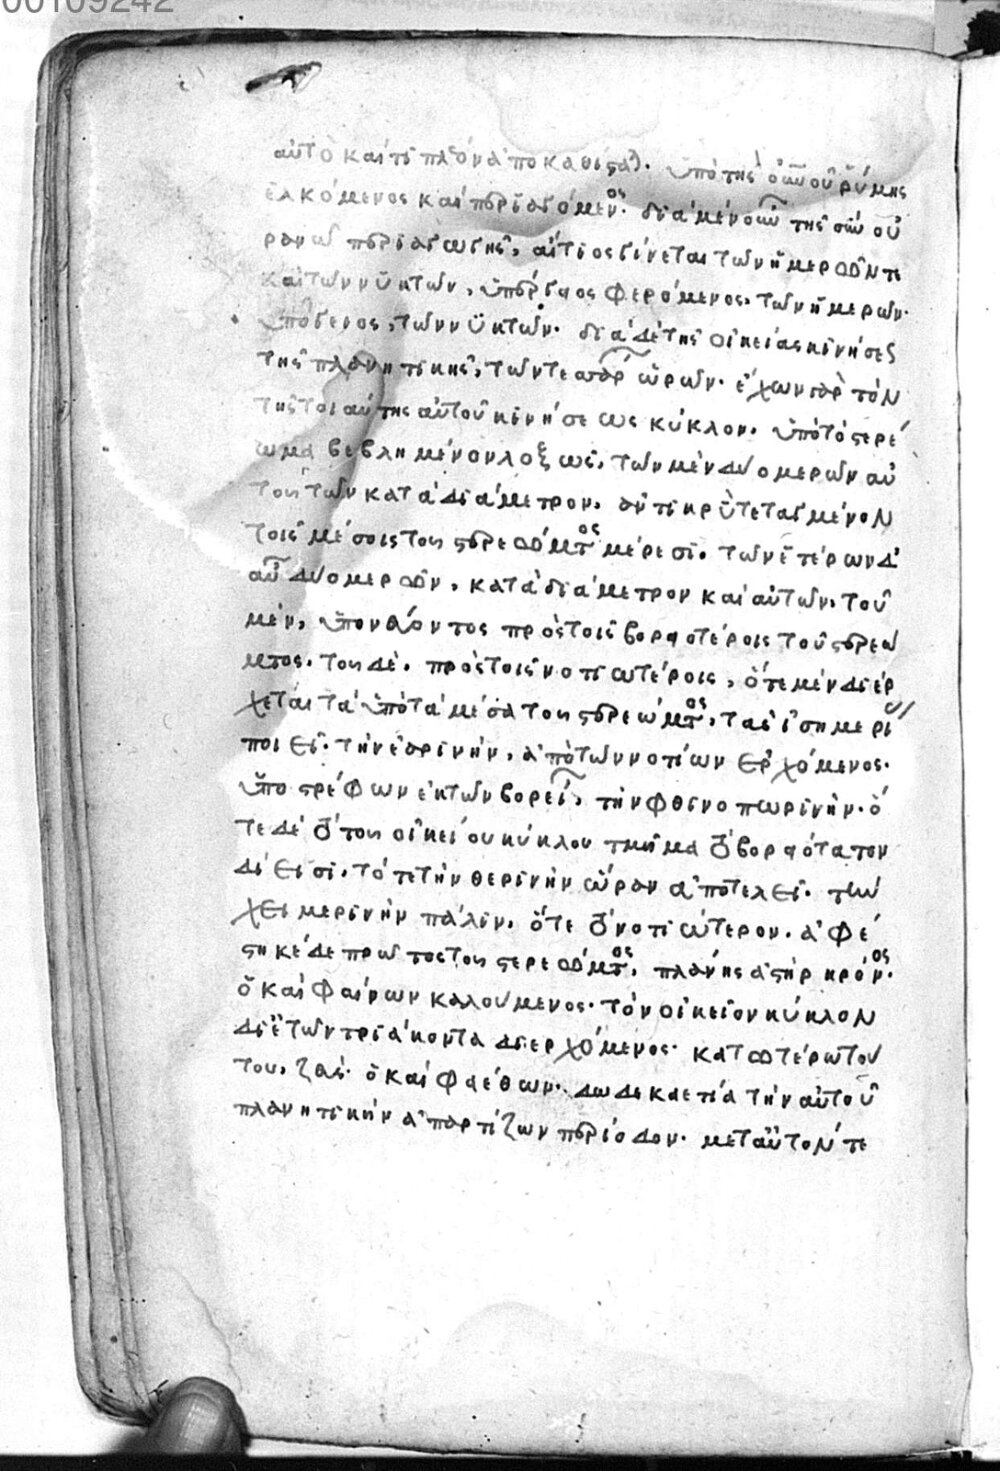 00109242
αὐτὸ καί τι πλέον ἀποκαθιστᾷ). ὑπὸ τῆς οὐνοῦ ῥύμης
ἑλκόμενος καὶ περιαγόμενος. διὰ μὲν οὖν τῆς σὺν οὐ
ρανῷ περιαγωγῆς, αἴτιος γίνεται τῶν ἡμερῶν τε
καὶ τῶν νυκτῶν, ὑπέργειος φερόμενος, τῶν ἡμερῶν.
ὑπόγειος, τῶν νυκτῶν. διὰ δὲ τῆς οἰκείας κινήσεως
τῆς πλανητικῆς, τῶν τεσσάρων ὡρῶν. ἔχων γὰρ τὸν
τῆς τοιαύτης αὐτοῦ κινήσεως κύκλον, ὑπὸ τὸ στερέ
ωμα βεβλημένον λοξῶς, τῶν μὲν δύο μερῶν αὐ
τοῦ τῶν κατὰ διάμετρον, ἀντικρὺ τεταγμένον
τοῖς μέσοις τοῦ στερεώματος μέρεσι. τῶν ἑτέρων δ'
αὖ δύο μερῶν, κατὰ διάμετρον καὶ αὐτῶν, τοῦ
μὲν, ὑπονεύοντος πρὸς τοῖς βορειοτέροις τοῦ στερεώ
ματος. τοῦ δὲ, πρὸς τοῖς νοτιωτέροις, ὅτε μὲν διέρ
χεται τὰ ὑπὸ τὰ μέσα τοῦ στερεώματος, τὰς ἰσημερί
ποιεῖ. τὴν ἐαρινὴν, ἀπὸ τῶν νοτίων ἐρχόμενος.
ὑποστρέφων ἐκ τῶν βορείων, τὴν φθινοπωρινήν. ὅ
τε δὲ τὸ τοῦ οἰκείου κύκλου τμῆμα τὸ βορειότατον
δίεισι, τότε τὴν θερινὴν ὥραν ἀποτελεῖ. τὴν
χειμερινὴν πάλιν, ὅτε τὸ νοτιώτερον. ἀφέ
στηκε δὲ πρῶτος τοῦ στερεώματος, πλάνης ἀστὴρ κρόνος.
ὃ καὶ φαίνων καλούμενος. τὸν οἰκεῖον κύκλον
δι' ἐτῶν τριάκοντα διερχόμενος. κατωτέρω τού
του, ζεύς. ὃ καὶ φαέθων. δωδεκαετίᾳ τὴν αὐτοῦ
πλανητικὴν ἀπαρτίζων περίοδον. μετ' αὐτόν τε